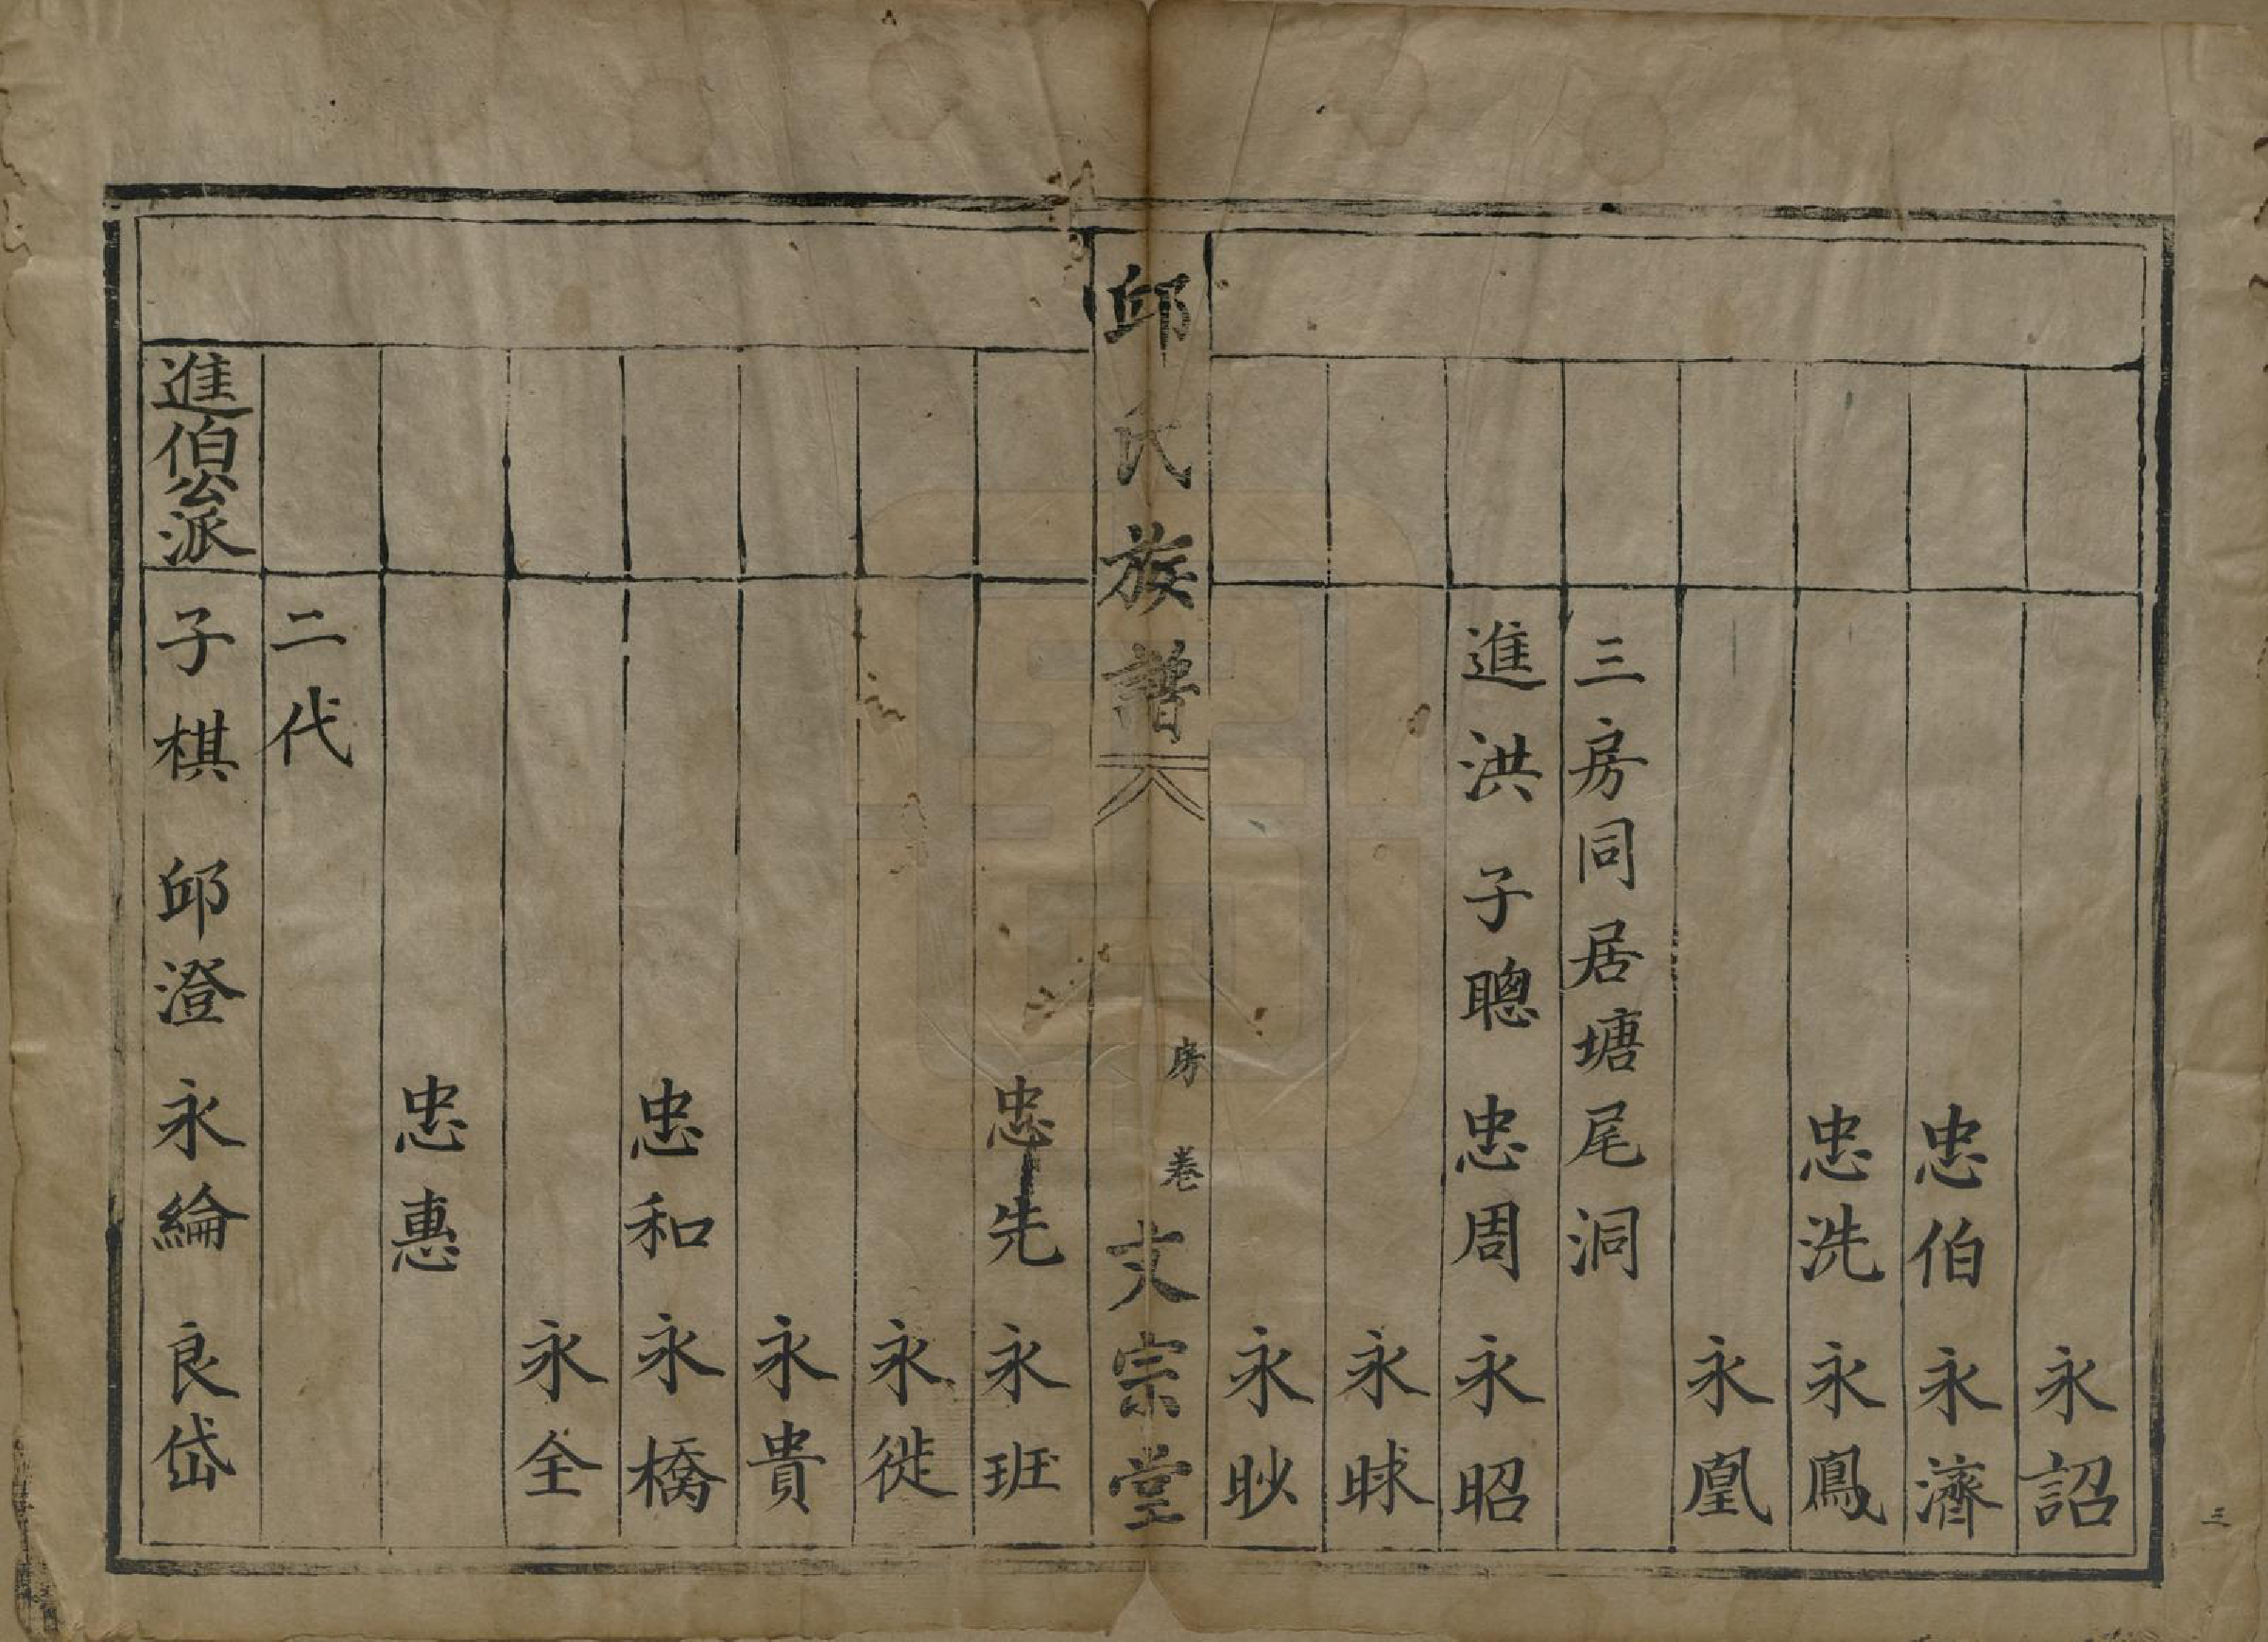 永詔
忠伯 永濟
忠洗 永鳳
永凰
三房同居塘尾洞
進洪 子聰 忠周 永昭
永眯
永眇
邱氏族譜 房 卷 文宗堂
忠先 永班
永徙
永貴
忠和 永橋
永全
忠惠
二代
進伯公派 子棋 邱澄 永綸 良岱
三